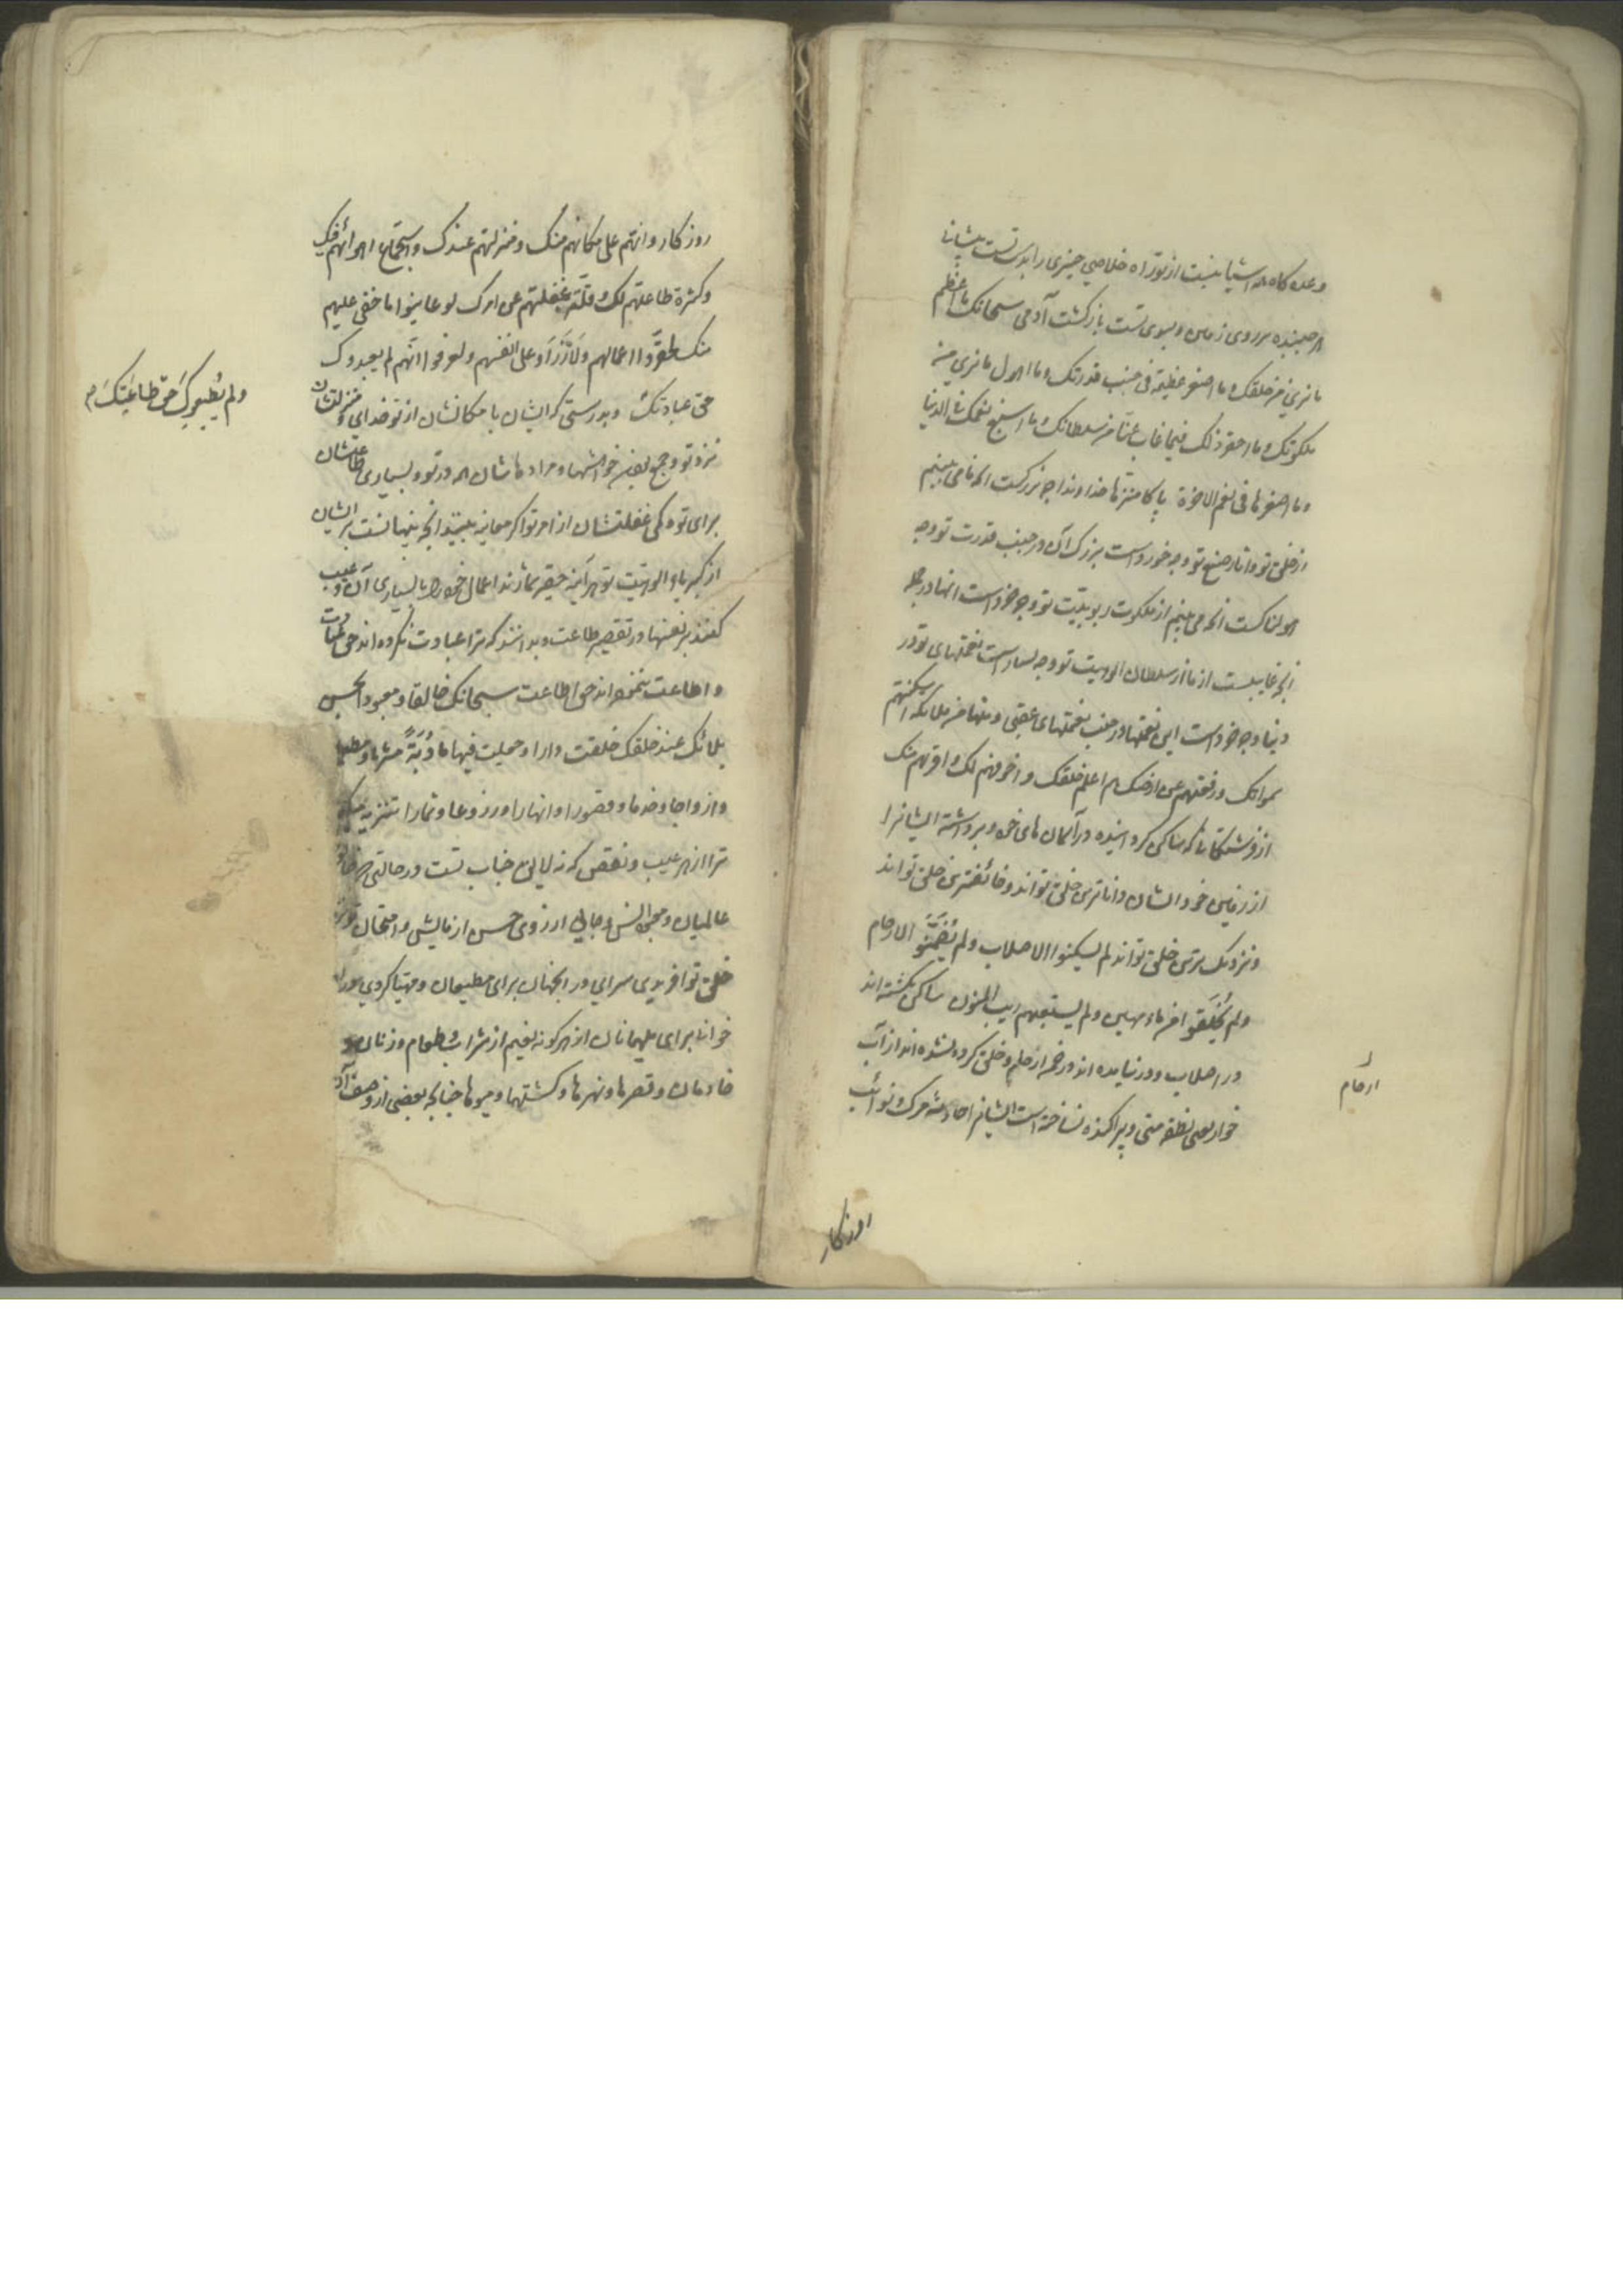 وعده كاه همه اشيا نيست از تو راه خلاصي چيزى را بدست تست پيشانى
هر جنبنده بر روى زمين و بسوى تست بازكشت آدمى سبحانك ما اعظم
ما نرى من خلقك و ما اصغر عظيمه فى جنب قدرتك و ما اهول ما نرى من
ملكوتك و ما احقر ذلك فيما غاب عنّا من سلطانك و ما اسبغ نعمك فى الدنيا
و ما اصغرها فى نعم الاخرة پاكا منزّها خداوندا چه بزركست انچه ما مى بينيم
از خلق تو و اثار صنع تو و چه خورد است بزرك آن در جنب قدرت تو و چه
هولناكست انچه مى بينيم از ملكوت ربوبيّت تو و چه خورد است انها در جنب
انچه غايبست از ما از سلطان الوهيت تو و چه بسيار است نعمتهاى تو در
دنيا و چه خورد است اين نعمتها در جنب نعمتهاى عقبى و منها من ملائكة اسكنتهم
سمواتك و رفعتهم عن ارضك هم اعلم خلقك و اخوفهم لك و اقربهم منك
از فرشتكانى كه ساكن كردانيده در آسمان هاى خود و برداشته ايشانرا
از زمين خود ايشان داناترين خلق تو اند و خائفترين خلق تو اند
و نزديك ترين خلق تو اند لم يسكنوا الاصلاب و لم يُضَمَّنوا الارحام
و لم يُخلَقوا من ماء مهين و لم يشعبهم ريب المنون ساكن نكشته اند
در اصلاب و در نيامده اند در ارحام و خلق كرده نشده اند از آب
خوار يعنى نطفه منى و پراكنده نساخته است ايشانرا حادثه مرك و نوائب
ارحام
روزكار
روزكار و انهم على مكانهم منك و منزلتهم عندك و استجماع اهوائهم فيك
و كثرة طاعتهم لك و قلّة غفلتهم عن امرك لو عاينوا ما خفى عليهم
منك لحقّروا اعمالهم و لَزَرَوا على انفسهم و لعرفوا انّهم لم يعبدوك
حق عبادتك و بدرستى كه ايشان با مكانشان از تو خداى و منزلتشان
نزد تو و جمع بودن خواهشها و مرادهاشان همه در تو و بسيارى طاعتشان
براى تو و كمى غفلتشان از امر تو اكر معاينه بينند انچه پنهانست بر ايشان
از كبريا و الوهيت تو هر آينه حقير شمارند اعمال خود را با بسيارى آن و عيب
كنند بر نفسها در تقصير طاعت و بدانند كه ترا عبادت نكرده اند حق عبادت
و اطاعت ننموده اند حق اطاعت سبحانك خالقا و معبودا بحسن
بلائك عند خلقك خلقت دارا و جعلت فيها مأدُبَةً مشربا و مطعما
و ازواجا و خدما و قصورا و انهارا و زروعا و ثمارا تنزيه ميكنم
ترا از هر عيب و نقص كه نه لايق جناب تست در حالتى كه خالق
عالميان و معبود انس و جانى از روى حسن ازمايش و امتحان تو نزد
خلق تو افريدى سرايى در انجهان براى مطيعان و مهيّا كردى در ان
خوانى براى مهمانان از هر كونه نعيم از شراب و طعام و زنان و
خادمان و قصرها و نهرها و كشتها و ميوها چنانچه بعضى از وصف آن
و لم يُطيعوكَ حقَّ طاعَتِكَ